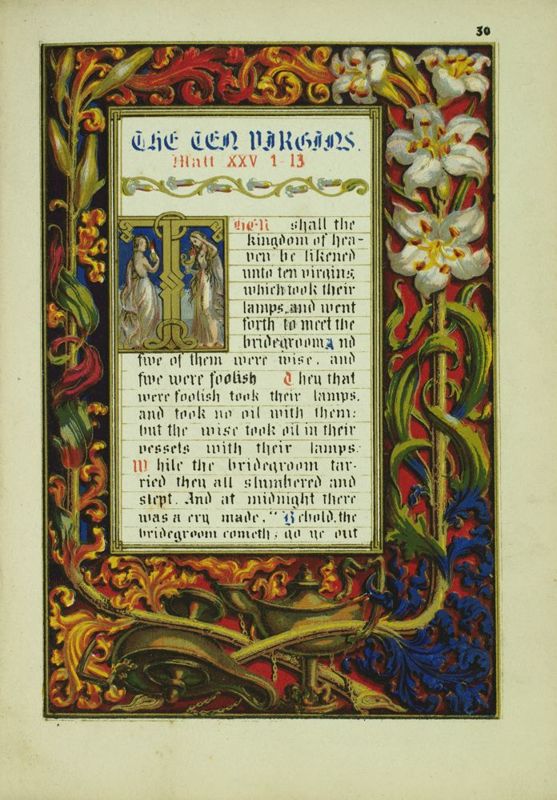 30
THE TEN VIRGINS.
Matt XXV 1-13
THEN shall the
kingdom of hea-
ven be likened
unto ten virgins,
which took their
lamps, and went
forth to meet the
bridegroom And
five of them were wise, and
five were foolish They that
were foolish took their lamps,
and took no oil with them:
but the wise took oil in their
vessels with their lamps.
While the bridegroom tar-
ried they all slumbered and
slept. And at midnight there
was a cry made, "Behold, the
bridegroom cometh; go ye out